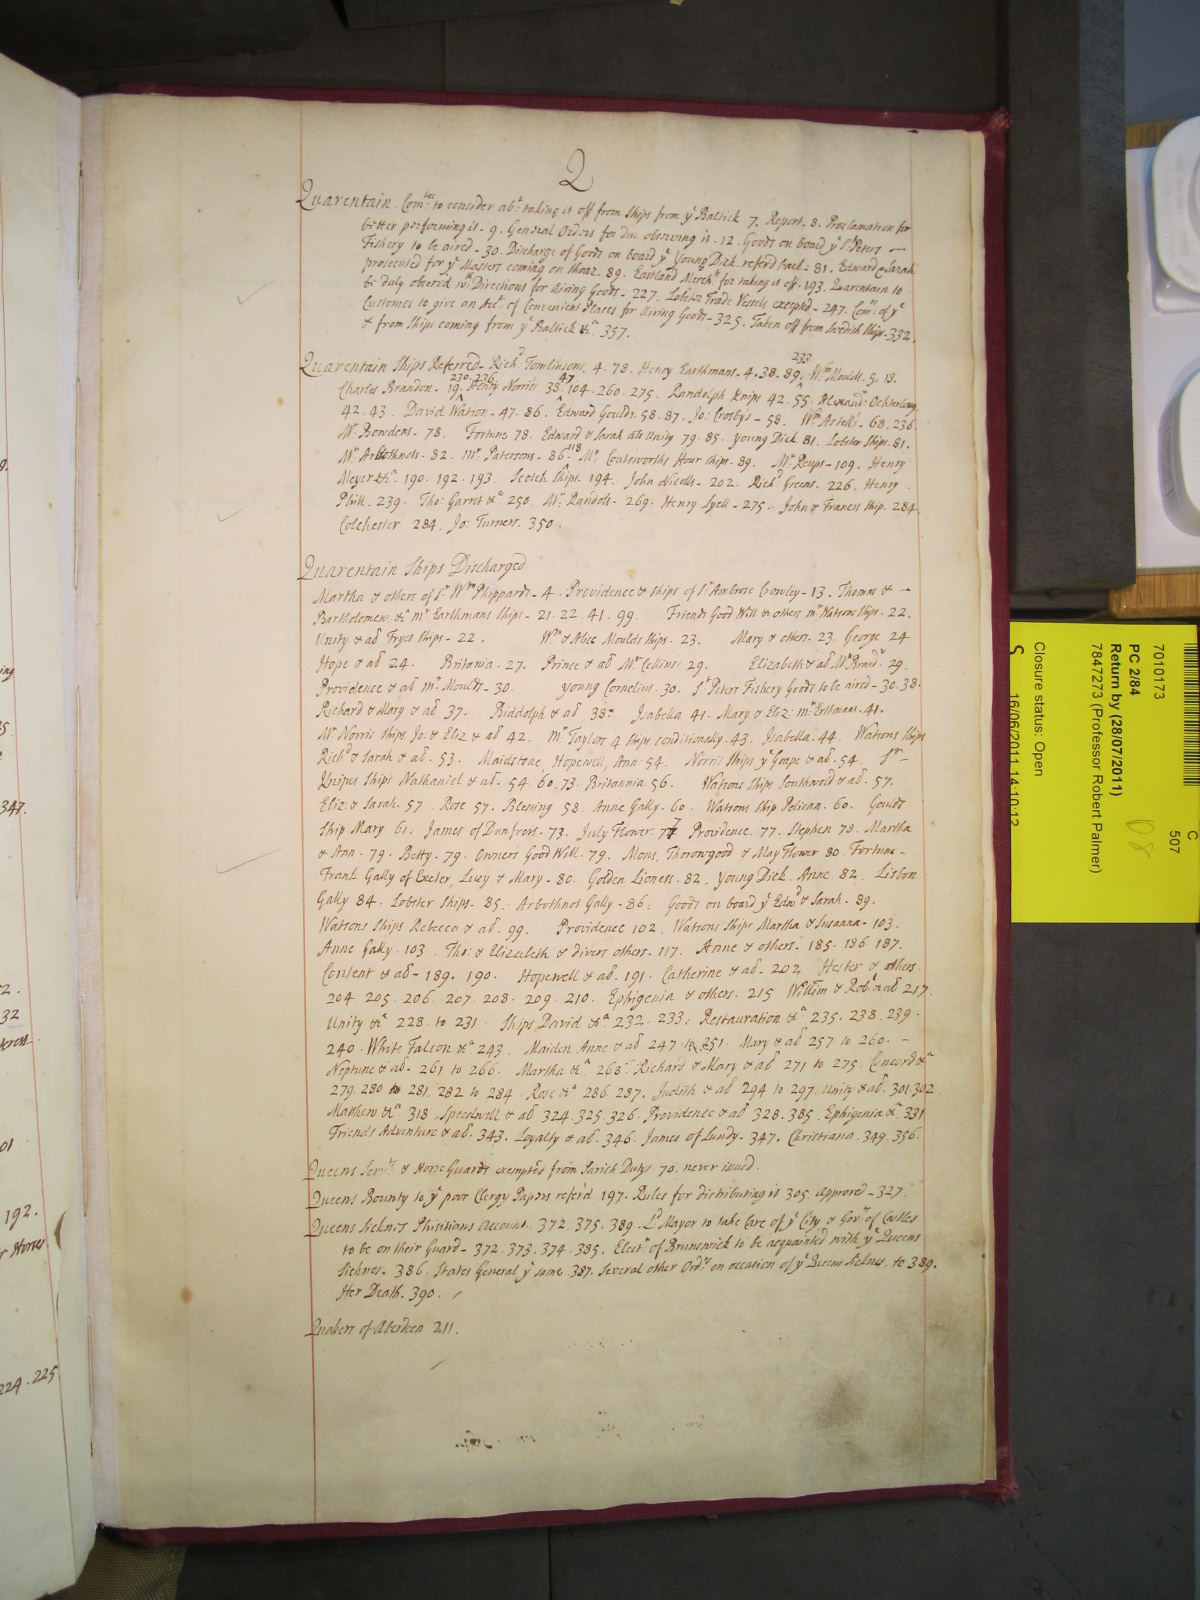 Q
Quarentain. Com:tee to consider ab:t taking it off from Ships from ye Baltick 7. Report. 8. Proclamation for
better performing it. 9. General Orders for due observing it. 12. Goods on board ye St Peters —
Fishery to be aired. 30. Discharge of Goods on board ye Young Dick. referd back. 81. Edward & Sarah
prosecuted for ye Masters coming on Shoar. 89. Eastland Merch:ts for taking it off. 193. Quarentain to
be duly observd wth Directions for Airing Goods. 227. Lobster Trade Vessels excepted. 247. Com:rs of ye
Customes to give an Acct. of Convenient Places for Airing Goods. 325. Taken off from Swedish Ships. 332.
& from Ships coming from ye Baltick &ca. 357.
Quarentain Ships Referred. Richd Tomlinsons, 4. 78. Henry Earthmans. 4. 38. 89. 233 Wm Moulds. 5. 18.
Charles Brandon. 19. 230. 236. Henry Norris 38. 47. 104. 260. 275. Randolph Knips 42. 55. Alexand: Ochterlony
42. 43. David Watson. 47. 86. Edward Goulds. 58. 87. Jo: Crosbys. 58. Wm Astells. 68. 236.
Mr. Bowdens. 78. Fortune 78. Edward & Sarah als Unity 79. 85. young Dick. 81. Lobster Ships. 81.
Mr. Arbothnots. 82. Mr. Patersons. 86. 118 Mr. Coatsworths Hour Ships. 89. Mr. Roups. 109. Henry
Meyer &ca. 190. 192. 193. Scotch Ships. 194. John Nicolls. 202. Richd Greens. 226. Henry
Phill. 239. Tho: Garret &ca 250. Mr. Randols. 269. Henry Lyell. 275. John & Francis Ship. 284.
Colchester. 284. Jo: Turners. 350.
Quarentain Ships Discharged
Martha & others of Sr Wm Phippards. 4. Providence & Ships of Sr Ambrose Crowley. 13. Thomas & —
Bartholomew, &ca Mr Earthmans Ships. 21. 22. 41. 99. Friends Good Will & others Mr Watsons Ships. 22.
Unity & al Fryes Ships. 22. Wm & Alice Moulds Ships. 23. Mary & others. 23. George 24
Hope & al 24. Britania. 27. Prince & al Mr Cellinis 29. Elizabeth & al 29.
Providence & al Mr Moulds. 30. young Cornelius. 30. St Peters Fishery Goods to be aired. 30. 38.
Richard & Mary & al 37. Biddolph & al 38. Isabella 41. Mary & Eliz: Mr Erthman. 41.
Mr Norris Ships Jo: & Eliz & al 42. Mr Taylors 4 Ships conditionally. 43. Isabella. 44. Watsons Ships
Richd & Sarah & al. 53. Maidstone, Hopewell, Ann: 54. Norris Ships ye Grape & al. 54. Sr —
Knipes Ships Nathaniel & al. 54. 60. 73. Britannia. 56. Watsons Ships Southwold & al. 57.
Eliz: & Sarah. 57. Rose 57. Blessing 58. Anne Gally. 60. Watsons Ship Pelican. 60. Goulds
Ship Mary 61. James of Dunfress. 73. July Flower. 77 Providence. 77. Stephen 78. Martha
& Ann. 79. Betty. 79. Owners Good Will. 79. Mons, Thorowgood & May Flower 80. Fortune —
Frank Gally of Exeter, Lucy & Mary. 80. Golden Lioness. 82. young Dick. Anne. 82. Lisbon
Gally 84. Lobster Ships. 85. Arbothnot Gally. 86. Goods on board ye Edwd & Sarah. 89.
Watsons Ships Rebecca & al. 99. Providence 102. Watsons Ships Martha & Susanna. 103.
Anne Gally. 103. Tho: & Elizabeth & divers others. 117. Anne & others. 185. 186. 187.
Consent & al. 189. 190. Hopewell & al. 191. Catherine & al. 202. Hester & others.
204. 205. 206. 207. 208. 209. 210. Ephigenia & others. 215 Willim & Robt & al 217.
Unity &ca 228. to 231. Ships David &ca 232. 233. Restauration &ca 235. 238. 239.
240. White Falcon &ca 243. Maiden Anne & al 247 to 251. Mary & al 257 to 260. —
Neptune & al. 261 to 266. Martha &ca 268. Richard & Mary & al 271 to 275. Concord &ca
279. 280 to 281. 282 to 284. Rose &ca 286. 287. Judith & al 294 to 297. Unity & al. 301. 302
Mathew &ca 318. Speedwell & al 324. 325. 326. Providence & al 328. 385. Ephigenia &ca 331
Friends Adventure & al. 343. Loyalty & al. 346. James of Lundy. 347. Christiana 349. 356.
Queens Serv:ts & Horse Guards exempted from Parish Dutys 70. never issued.
Queens Bounty to ye poor Clergy Papers referd 197. Rules for distributing it 305. Approved. 327.
Queens Sicknes Phisitians Account. 372. 375. 389. Ld Mayor to take Care of ye City & Govrs of Castles
to be on their Guard. 372. 373. 374. 385. Electr of Brunswick to be acquainted with ye Queens
Sicknes. 386. States General ye same 387. Several other Ordrs on occasion of ye Queens Sicknes. to 389.
Her Death. 390.
Quakers of Aberdeen 211.
347.
32
192.
224. 225
7010173
PC 2/84
Return by (28/07/2011)
7847273 (Professor Robert Palmer)
Closure status: Open
16/06/2011 14:10:12
C
507